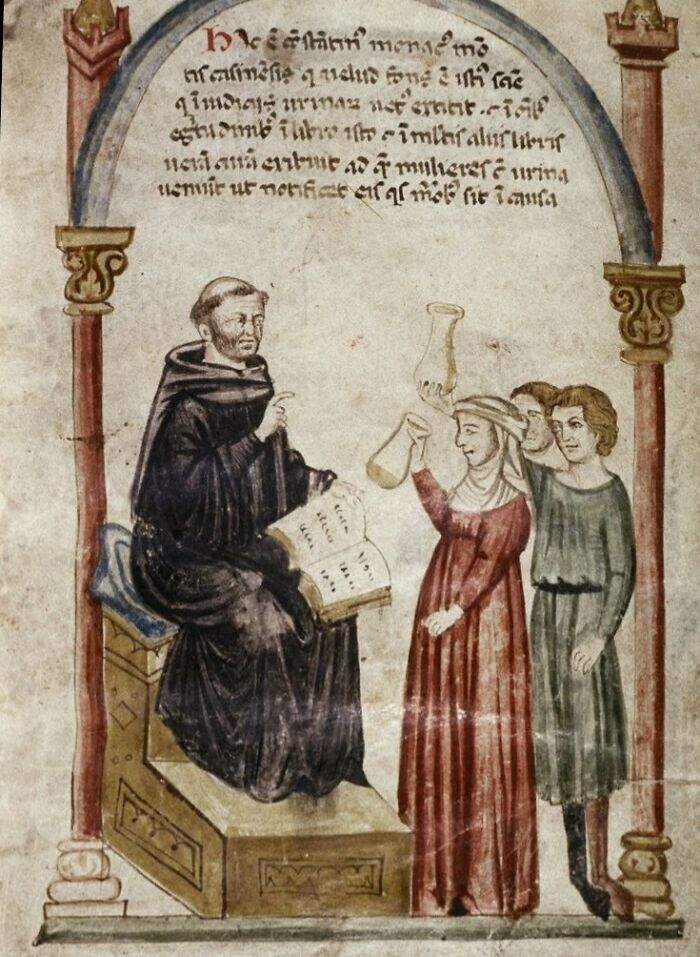 Hic ē 9stātin' monac' mō
tis casinēsis q' uelud fons ē isti' sciē
q' ī iudiciis urinaꝝ uer' extitit . ⁊ ī oīb'
egritudinib' ī libro isto ⁊ ī multis aliis libris
uerā curā exibuit ad qē mulieres c̄ urina
ueniūt ut notificet eis qis mōb' sit ī causa